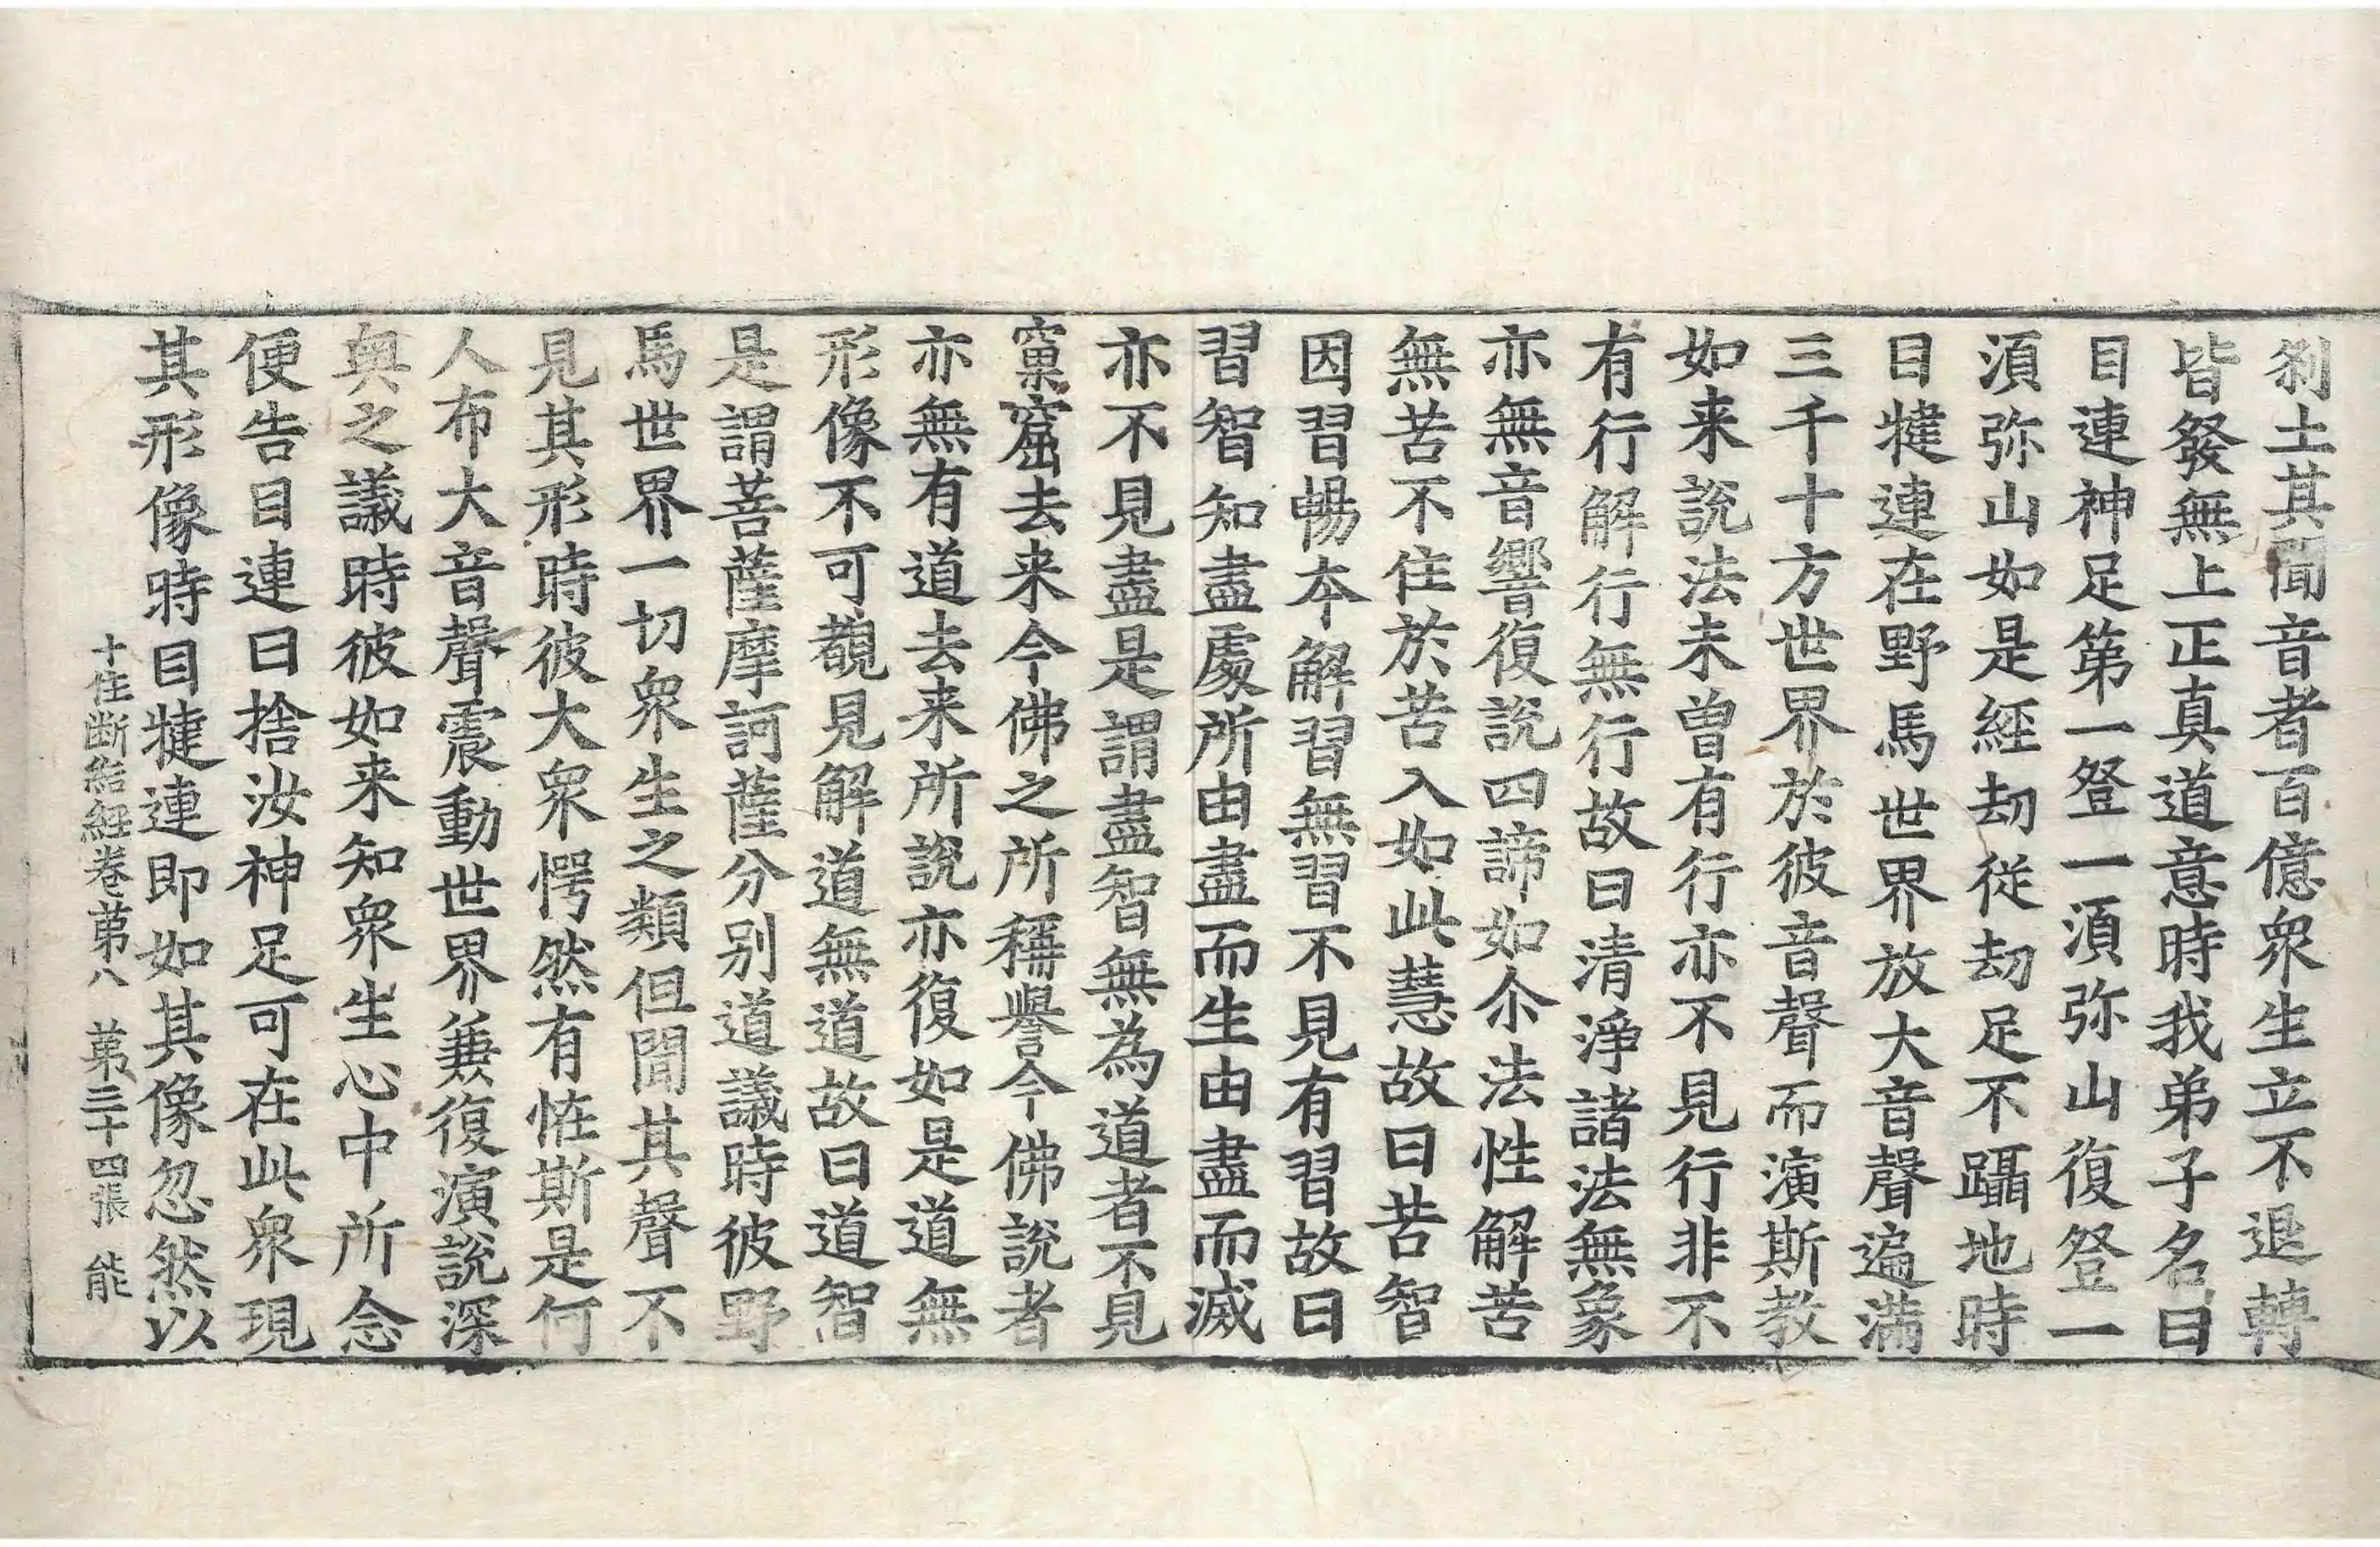 刹土其聞音者百億衆生立不退轉
皆發無上正真道意時我弟子名曰
目連神足第一登一湏弥山復登一
湏弥山如是經劫從劫足不躡地時
目揵連在野馬世界放大音聲遍滿
三千十方世界於彼音聲而演斯教
如来說法未曾有行亦不見行非不
有行解行無行故曰清淨諸法無象
亦無音響復說四諦如尒法性解苦
無苦不住於苦入如此慧故曰苦智
因習暢本解習無習不見有習故曰
習智知盡處所由盡而生由盡而滅
亦不見盡是謂盡智無為道者不見
窠窟去来今佛之所稱譽今佛說者
亦無有道去来所說亦復如是道無
形像不可覩見解道無道故曰道智
是謂菩薩摩訶薩分别道議時彼野
馬世界一切衆生之類但聞其聲不
見其形時彼大衆愕然有恠斯是何
人布大音聲震動世界兼復演說深
奥之議時彼如来知衆生心中所念
便告目連曰捨汝神足可在此衆現
其形像時目揵連即如其像忽然以
十住断結經卷第八 第三十四張 能